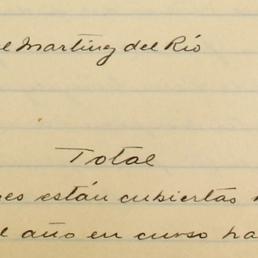 el Martinez del Río
Total
es están cubiertas
l año en curso ha